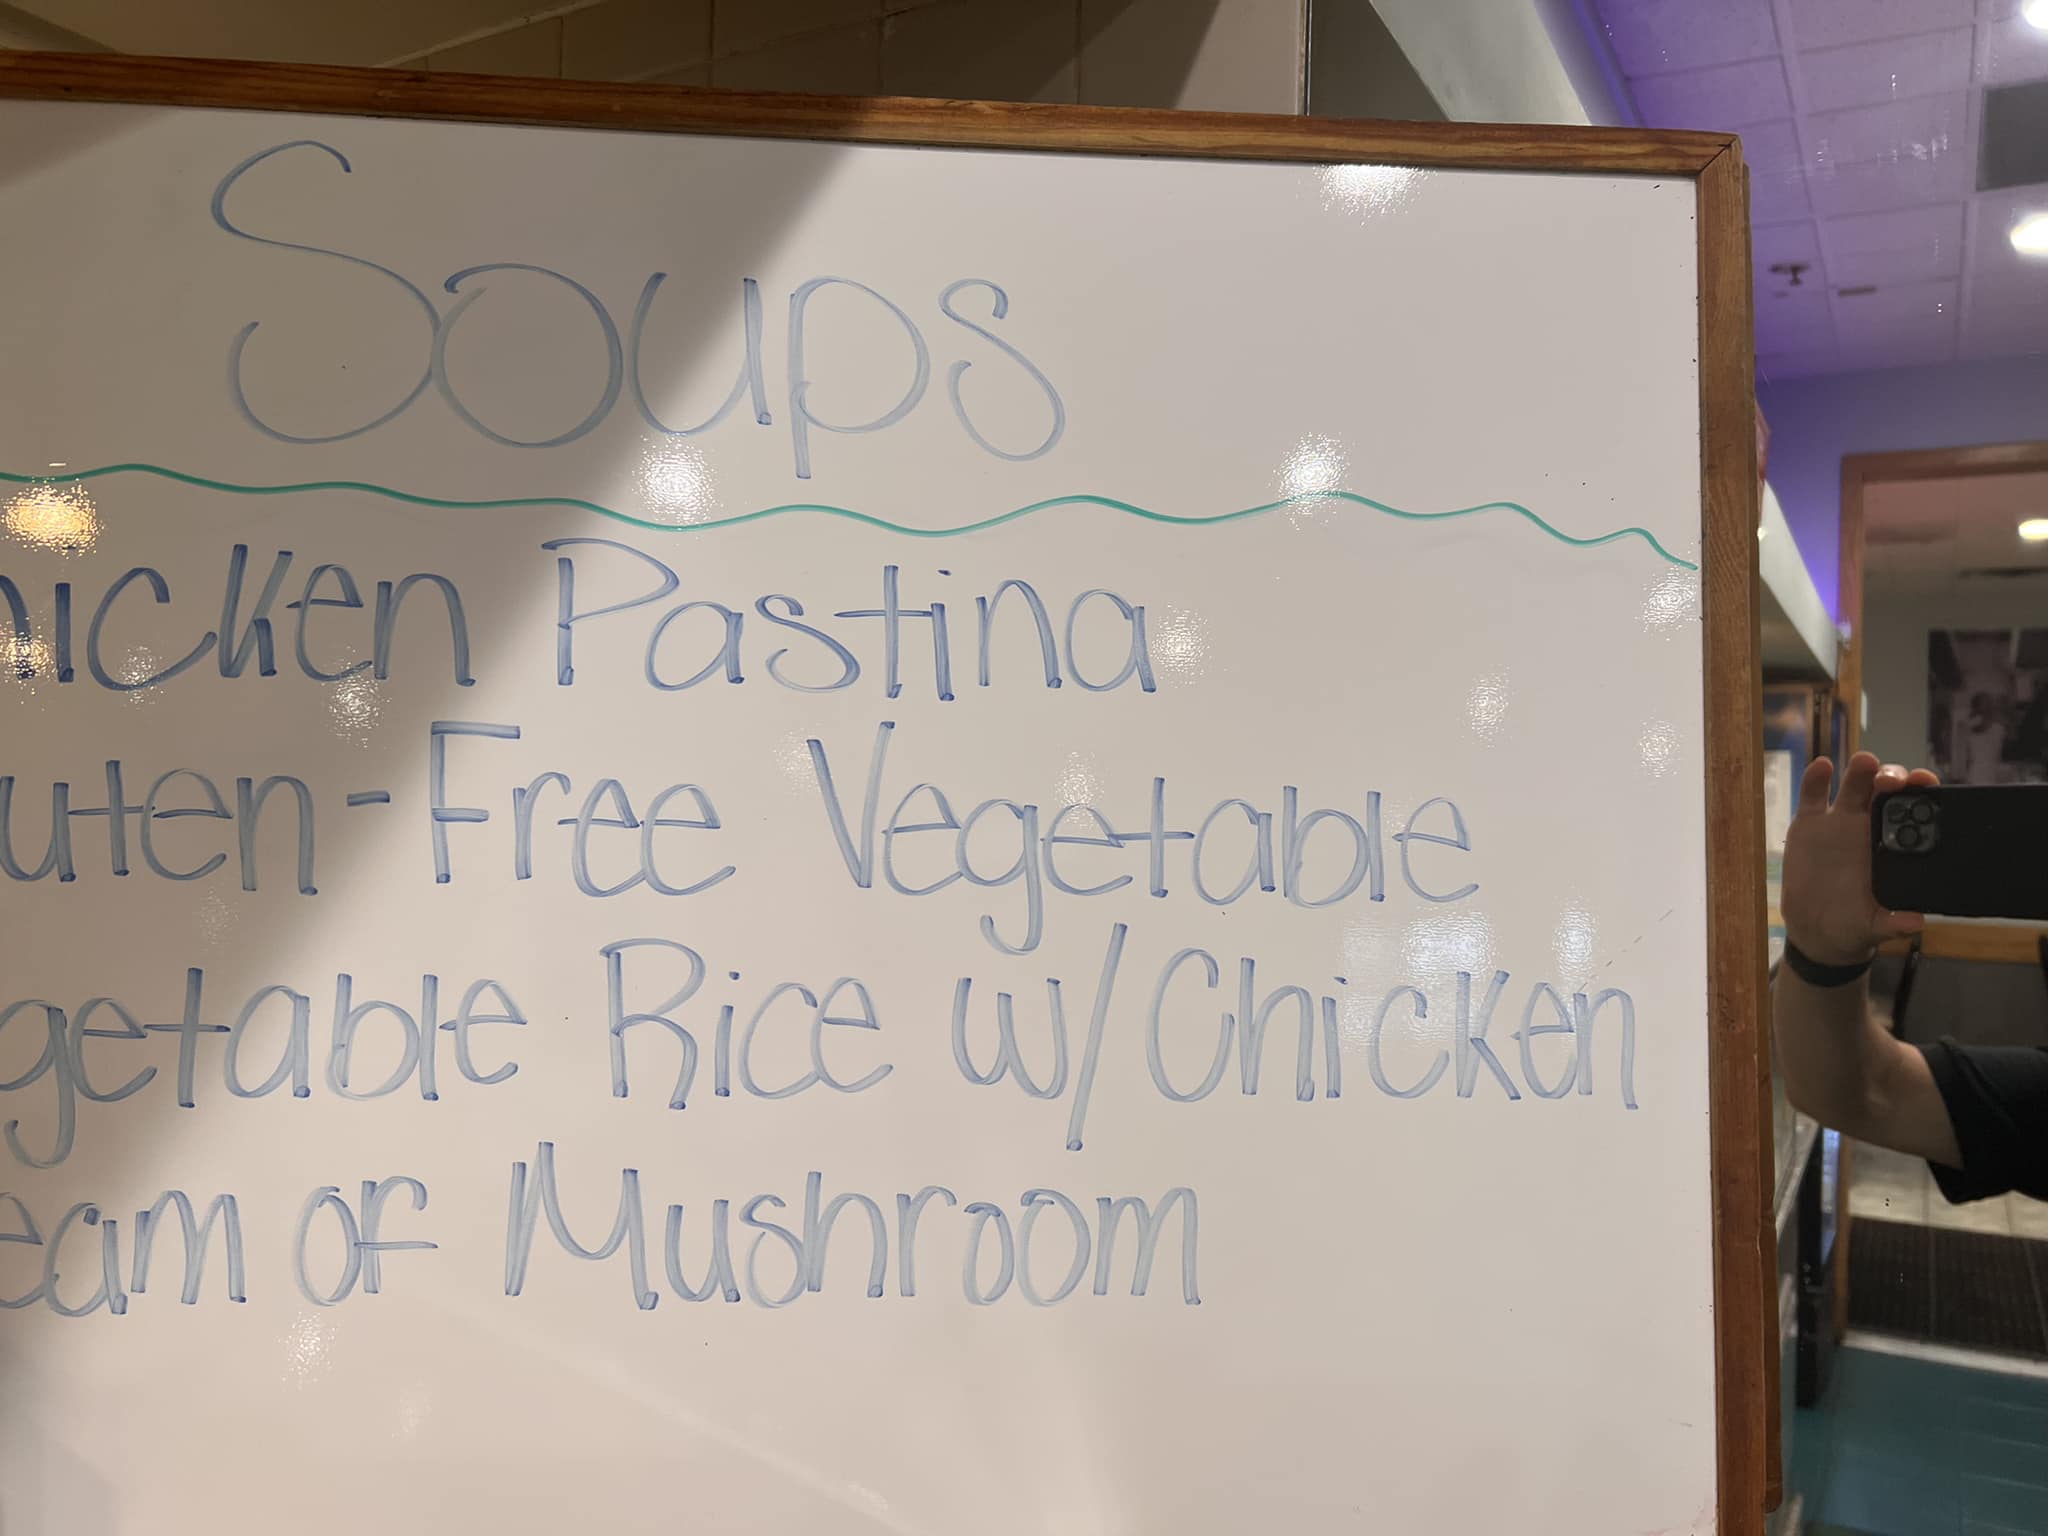 Soups
hicken Pastina
uten-Free Vegetable
getable Rice w/Chicken
eam of Mushroom